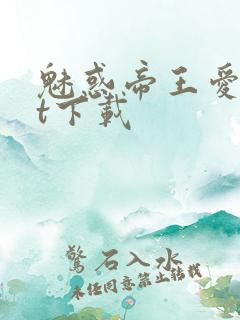 魅惑帝王爱
t下载
驚石入水
未经同意禁止转载